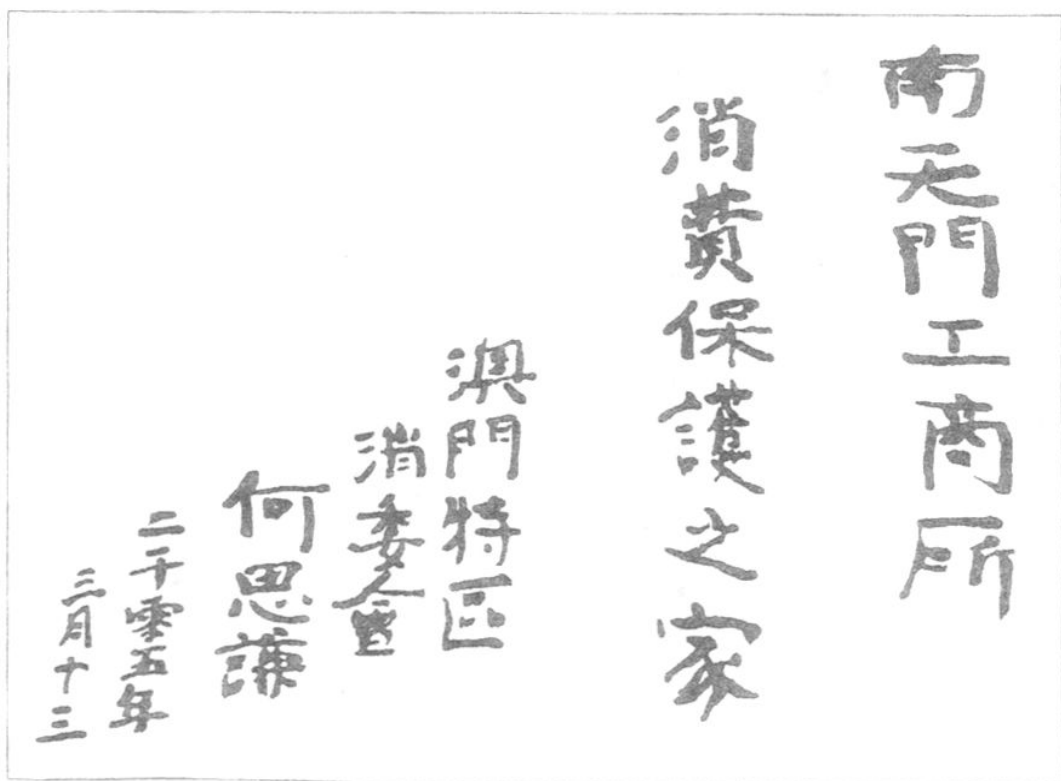 南天門工商所
消費保護之家
澳門特區
消委會
何思謙
二千零五年
三月十三